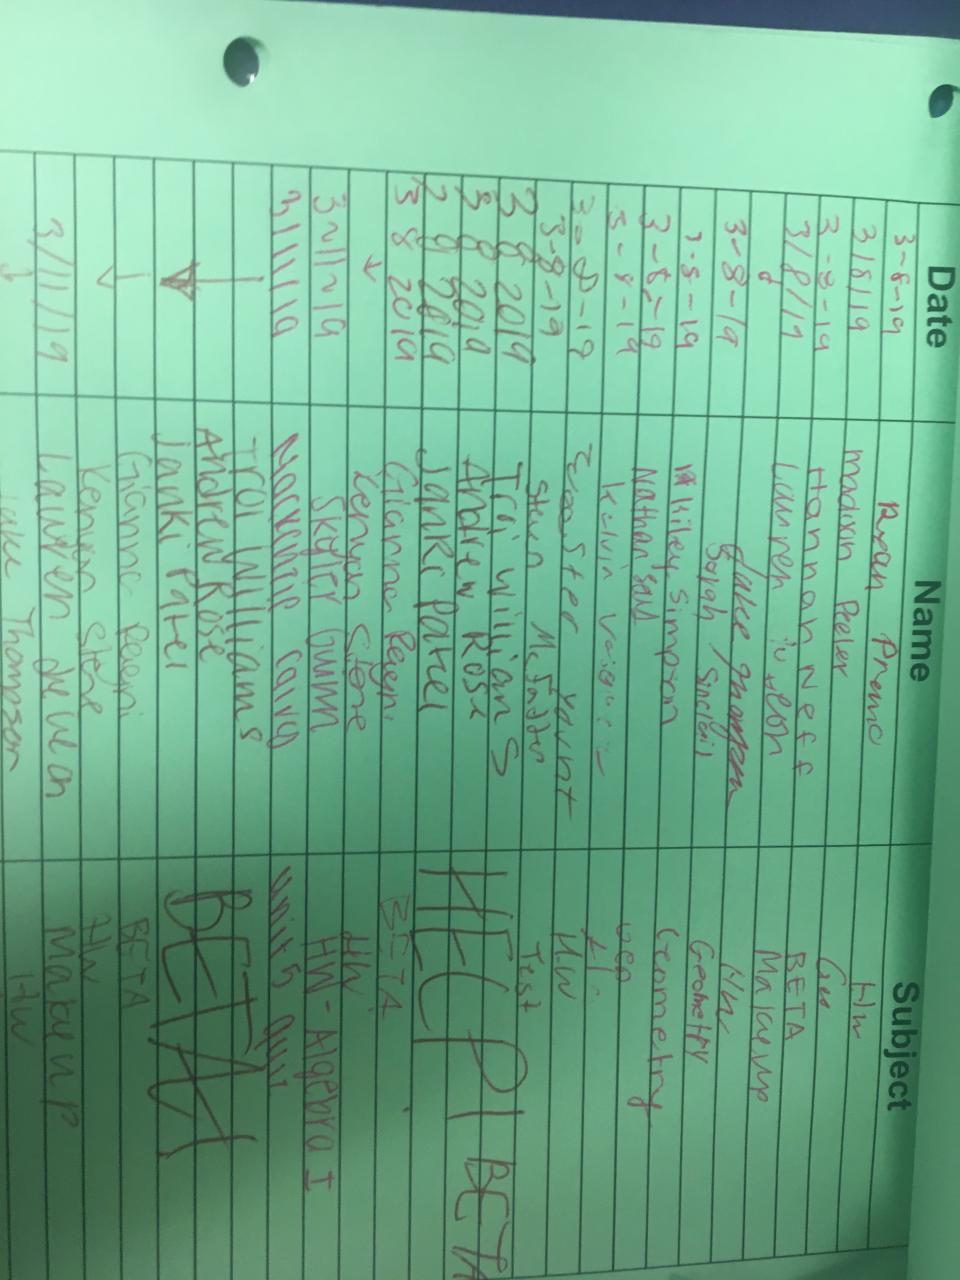 Date Name Subject
3-8-19 Premo Hw
3/8/19 Madison Peeler Gu
3-8-19 Hannah Neff BETA
3/8/19 Lauren Makeup
3-8-19 Jake Hw
3-8-19 Sarah Sinclair Geometry
3-8-19 Kiley Simpson Geometry
3-8-19 Nathan
3-8-19 Kelvin
3-8-19 Yount HW
3-8-19 Steven Test
3 8 2019 Troi Williams HELP! BETA
3 8 2019 Andrew Rose
2 8 2019 Janki Patel
3 8 2019 Gianna Regeni BETA
Kenyon Stone HW
3-11-19 Skyler Gunn HW-Algebra I
3/11/19 Unit 5 Quiz
Troi Williams BETA
Andrew Rose
Janki Patel
Gianna Regeni BETA
Kenyon Stone HW
3/11/19 Lauren Makeup
Thompson HW